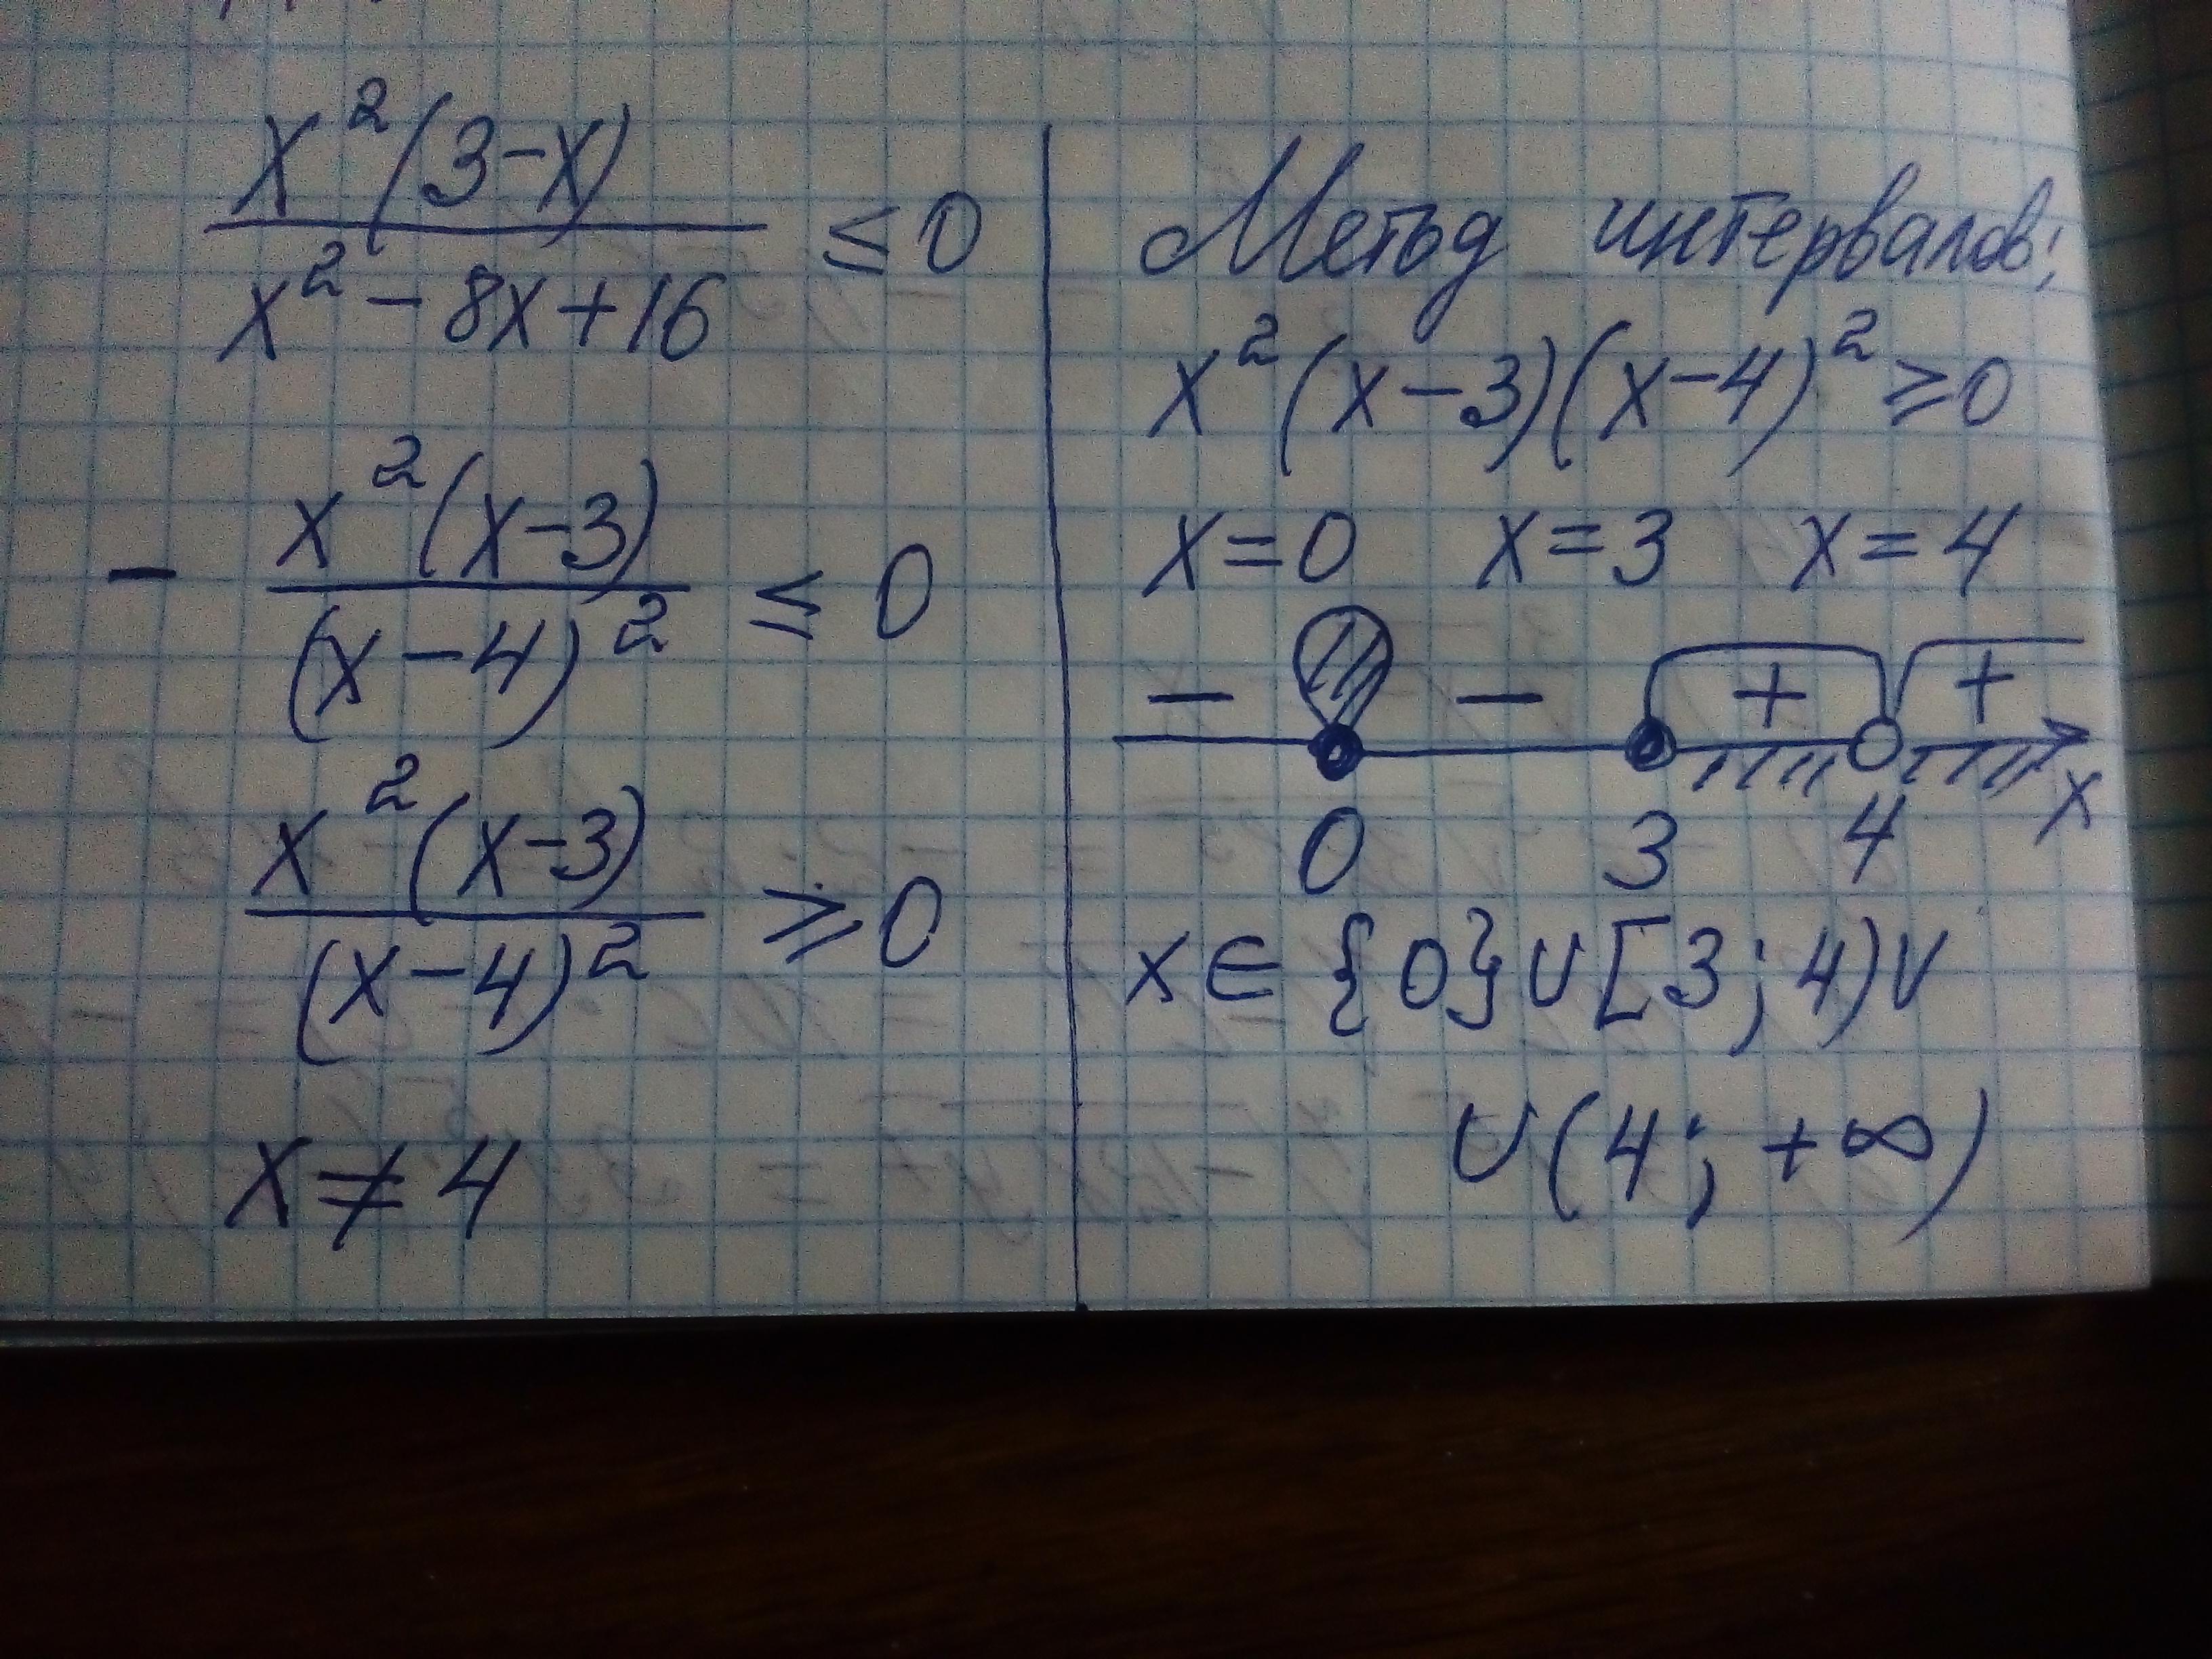 x²(3-x)
x² - 8x + 16 ≤ 0
- x²(x-3)
(x-4)² ≤ 0
x²(x-3)
(x-4)² ≥ 0
x ≠ 4
Метод интервалов:
x²(x-3)(x-4)² ≥ 0
x = 0 x = 3 x = 4
- - + +
0 3 4 x
x ∈ {0} ∪ [3; 4) ∪
∪ (4; +∞)